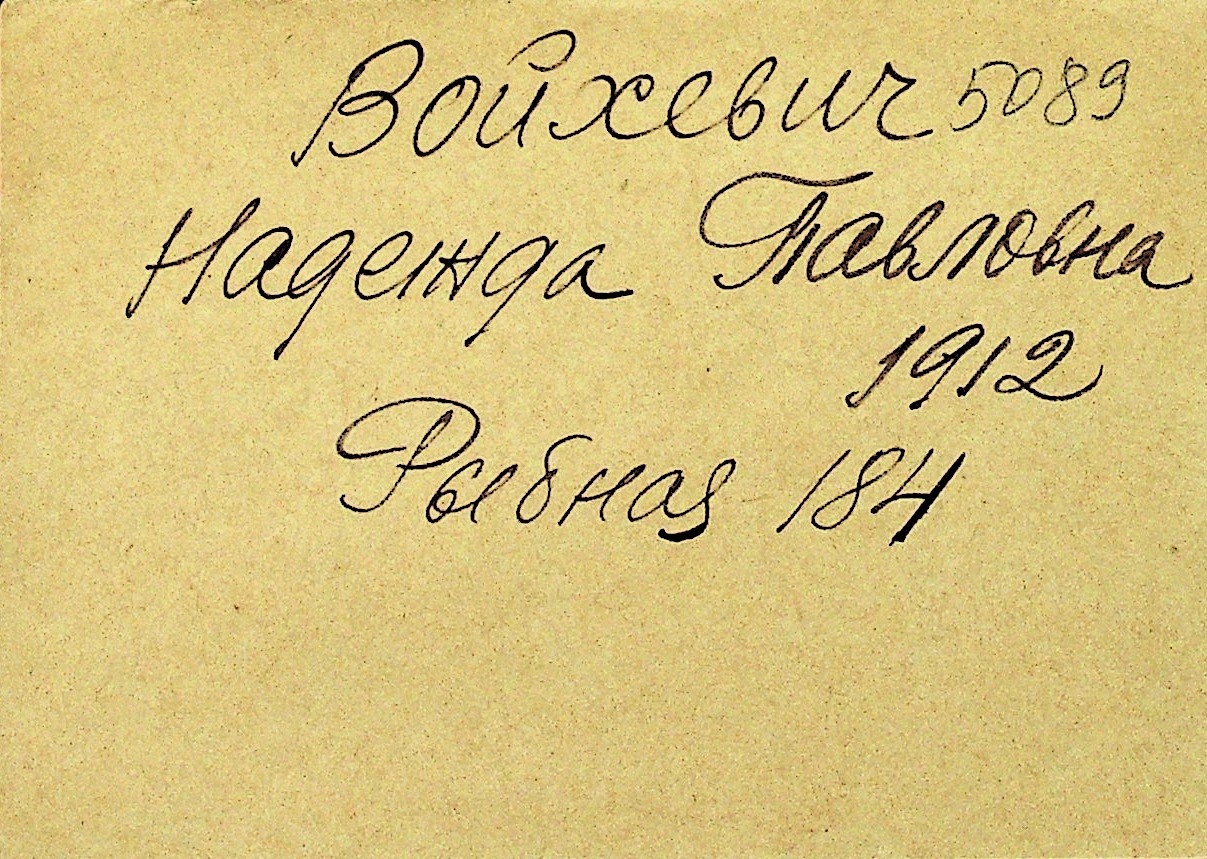 Войхевич 5089
Надежда Павловна
1912
Рыбная 184